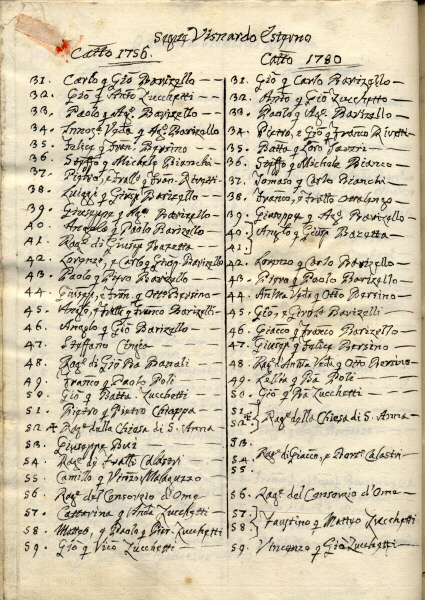 segue Visnardo Esterno
Catto 1756.
31. Carlo q Gio Barizello
32. Gio q Anto Zucchetti
33. Paolo q Agº Barizello
34. Innoce Veda q Agº Barizello
35. Felice q Fran. Bersino
36. Steffo q Michele Bianchi
37. Pietro, e Frallo q Fran. Rivetti
38. Luiggi q Giusp Barizello
39. Giuseppe q Agº Barizello
40. Angelo q Paolo Barizello
41. Ragº di Giusep Bazetta
42. Lorenzo, e Carlo q Gian Barizello
43. Paolo q Pietro Barizello
44. Giusep, e Fran. q Otto Bersino
45. Anglo, e Frallo q Franco Barizelli
46. Angelo q Gio Barizello
47. Steffano
48. Ragº di Gio Ba Banali
49. Franco q Paolo Poli
50. Gio q Batta Zucchetti
51. Pietro q Pietro Chiappa
52 Ragº della Chiesa di S. Anna
53. Giuseppe Bui
54. Ragº di Fratti Calastri
55. Camillo q Vinzo Malaguzzo
56. Ragº del Consorzio d'Ome
57. Cattarina q Anto Zucchetti
58. Matteo, q Paolo q Gior Zucchetti
59. Gio q Vico Zucchetti
Catto 1780
31. Gio q Carlo Barizello
32. Anto q Gio Zucchetto
33. Paolo q Agº Barizello
34. Pietro, e Gio q Franco Rivetti
35. Batta q Loro
36. Steffo q Michele Bianco
37. Tomaso q Carlo Bianchi
38. Franco, e Frallo
39. Giuseppe q Agº Barizello
40. Anglo q Giusp Bazetta
41.
42. Lorenzo q Carlo Barizello
43. Pietro q Paolo Barizello
44. Anna Veda q Otto Bersino
45. Gio, e Girolº Barizelli
46. Giacco q Franco Barizello
47. Giusep q Felice Bersino
48. Ragº d'Anna Veda q Otto Bersino
49. Lelia q Ba Poli
50. Gio q Ba Zucchetti
51.
52. Ragº della Chiesa di S. Anna
53.
54. Ragº di Giacco, e Calastri
55.
56. Ragº del Consorvio d'Ome
57.
58. Faustino q Matteo Zucchetti
59. Vincenzo q Gio Zucchetti